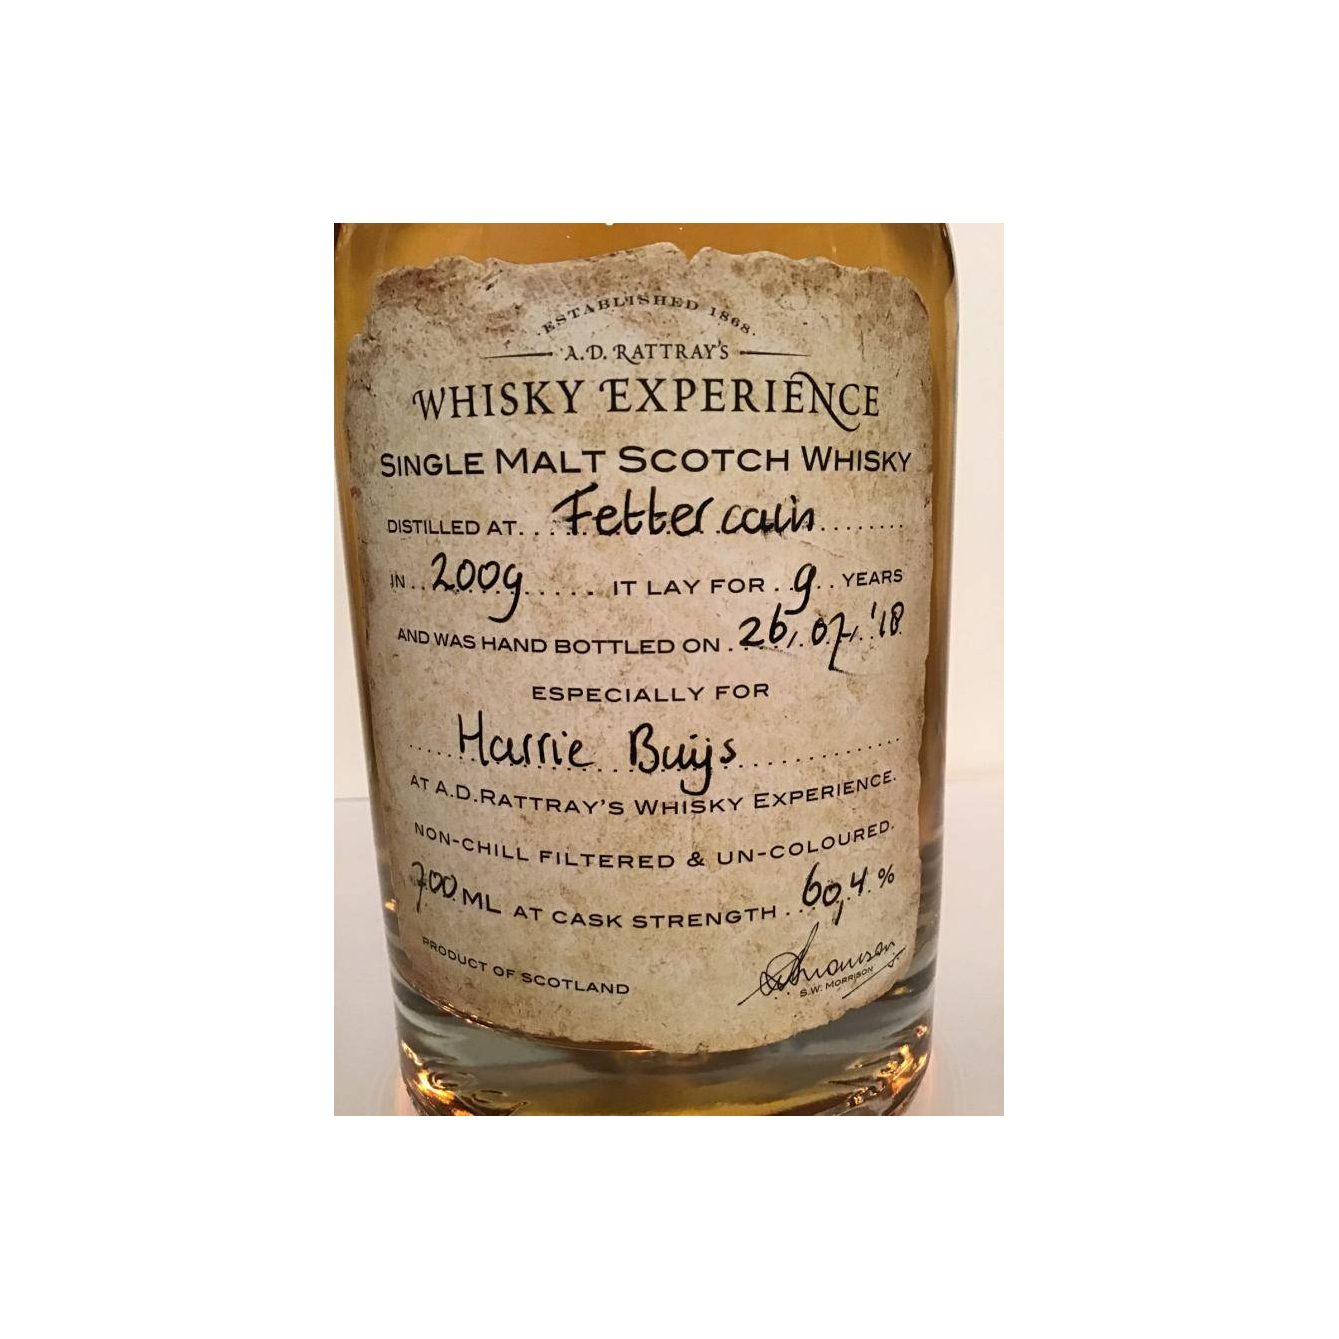 ESTABLISHED 1868.
A.D. RATTRAY'S
WHISKY EXPERIENCE
SINGLE MALT SCOTCH WHISKY
DISTILLED AT... Fettercairn ........
IN .. 2009 ..... IT LAY FOR .. 9 .. YEARS
AND WAS HAND BOTTLED ON . 26/07/'18
ESPECIALLY FOR
..... Harrie Buijs ............
AT A.D.RATTRAY'S WHISKY EXPERIENCE.
NON-CHILL FILTERED & UN-COLOURED.
700 ML AT CASK STRENGTH .. 60,4 %
PRODUCT OF SCOTLAND
S.W. MORRISON